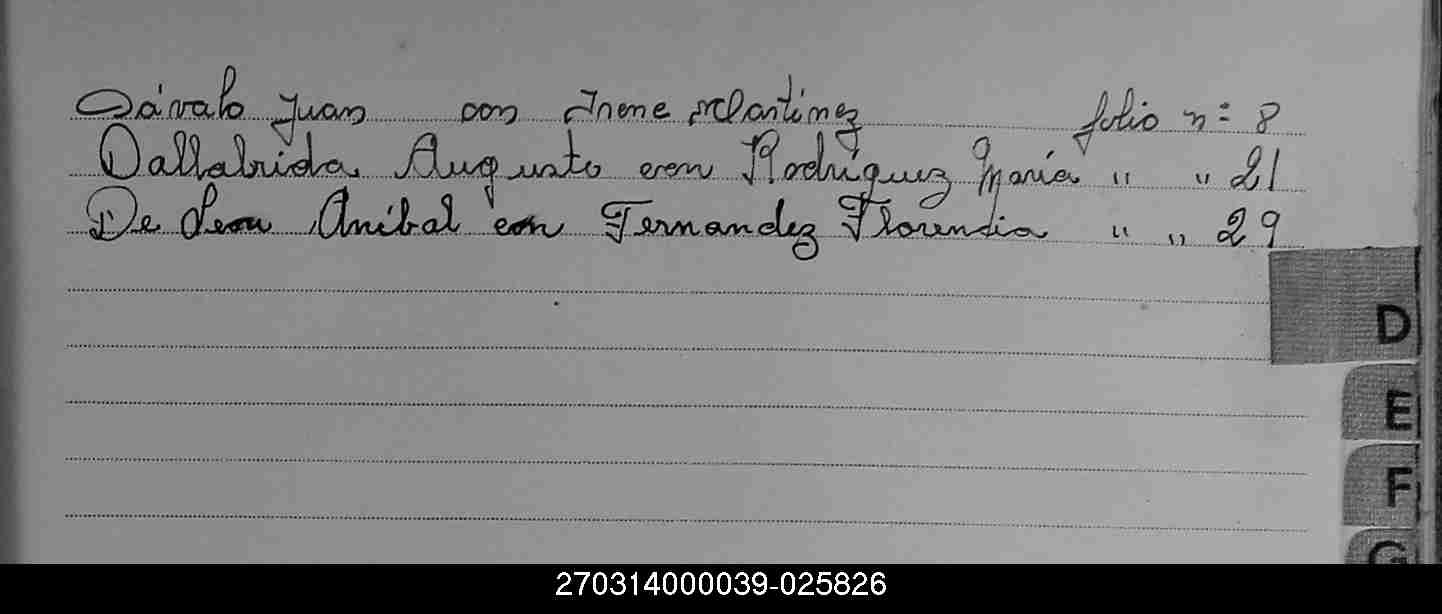 Dávalo Juan con Irene Martinez folio n= 8
Dallabrida Augusto con Rodriguez María " " 21
De Leon Aníbal con Fernandez Florencia " " 29
D
E
F
G
270314000039-025826